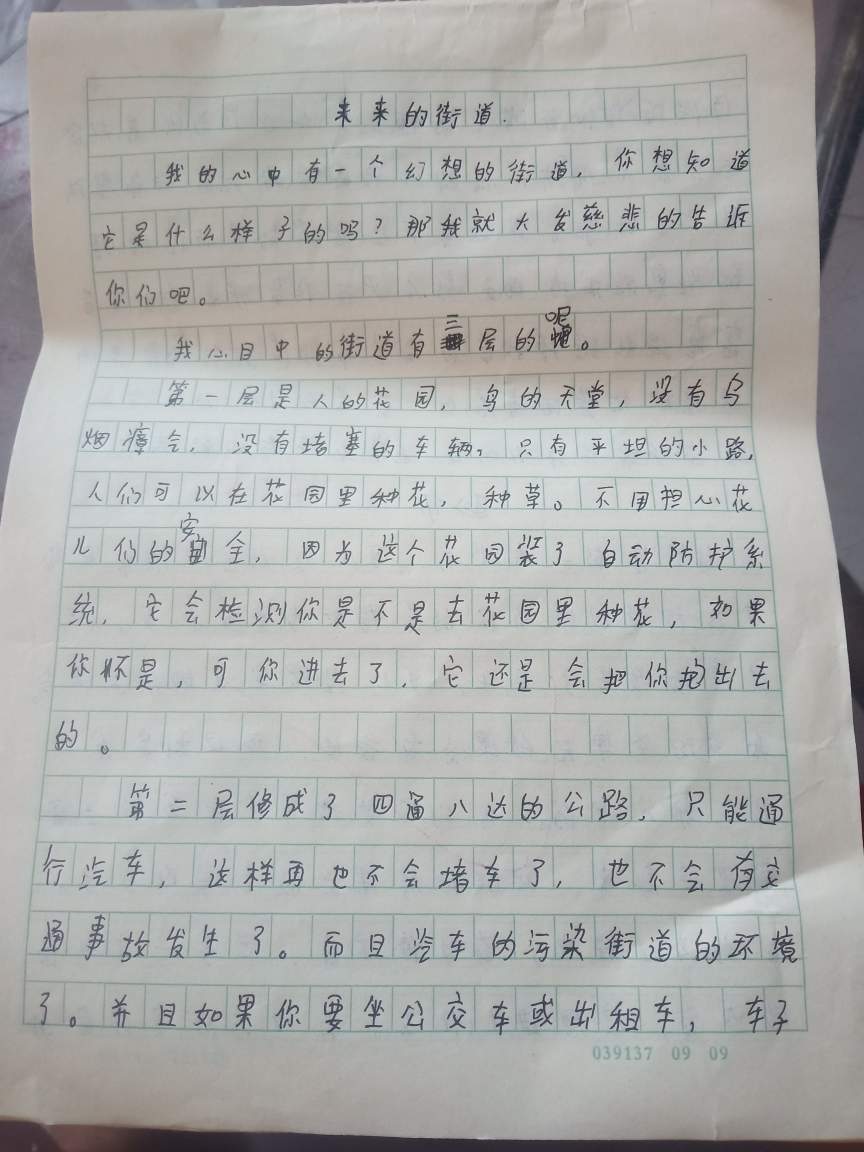 未来的街道.
我的心中有一个幻想的街道，你想知道
它是什么样子的吗？那我就大发慈悲的告诉
你们吧。
我心目中的街道有三层的呢。
第一层是人的花园，鸟的天堂，没有乌
烟瘴气，没有堵塞的车辆，只有平坦的小路，
人们可以在花园里种花，种草。不用担心花
儿们的安全，因为这个花园装了自动防护系
统，它会检测你是不是去花园里种花，如果
你不是，可你进去了，它还是会把你抱出去
的。
第二层修成了四通八达的公路，只能通
行汽车，这样再也不会堵车了，也不会有交
通事故发生了。而且汽车的污染街道的环境
了。并且如果你要坐公交车或出租车，车子
039137 09 09